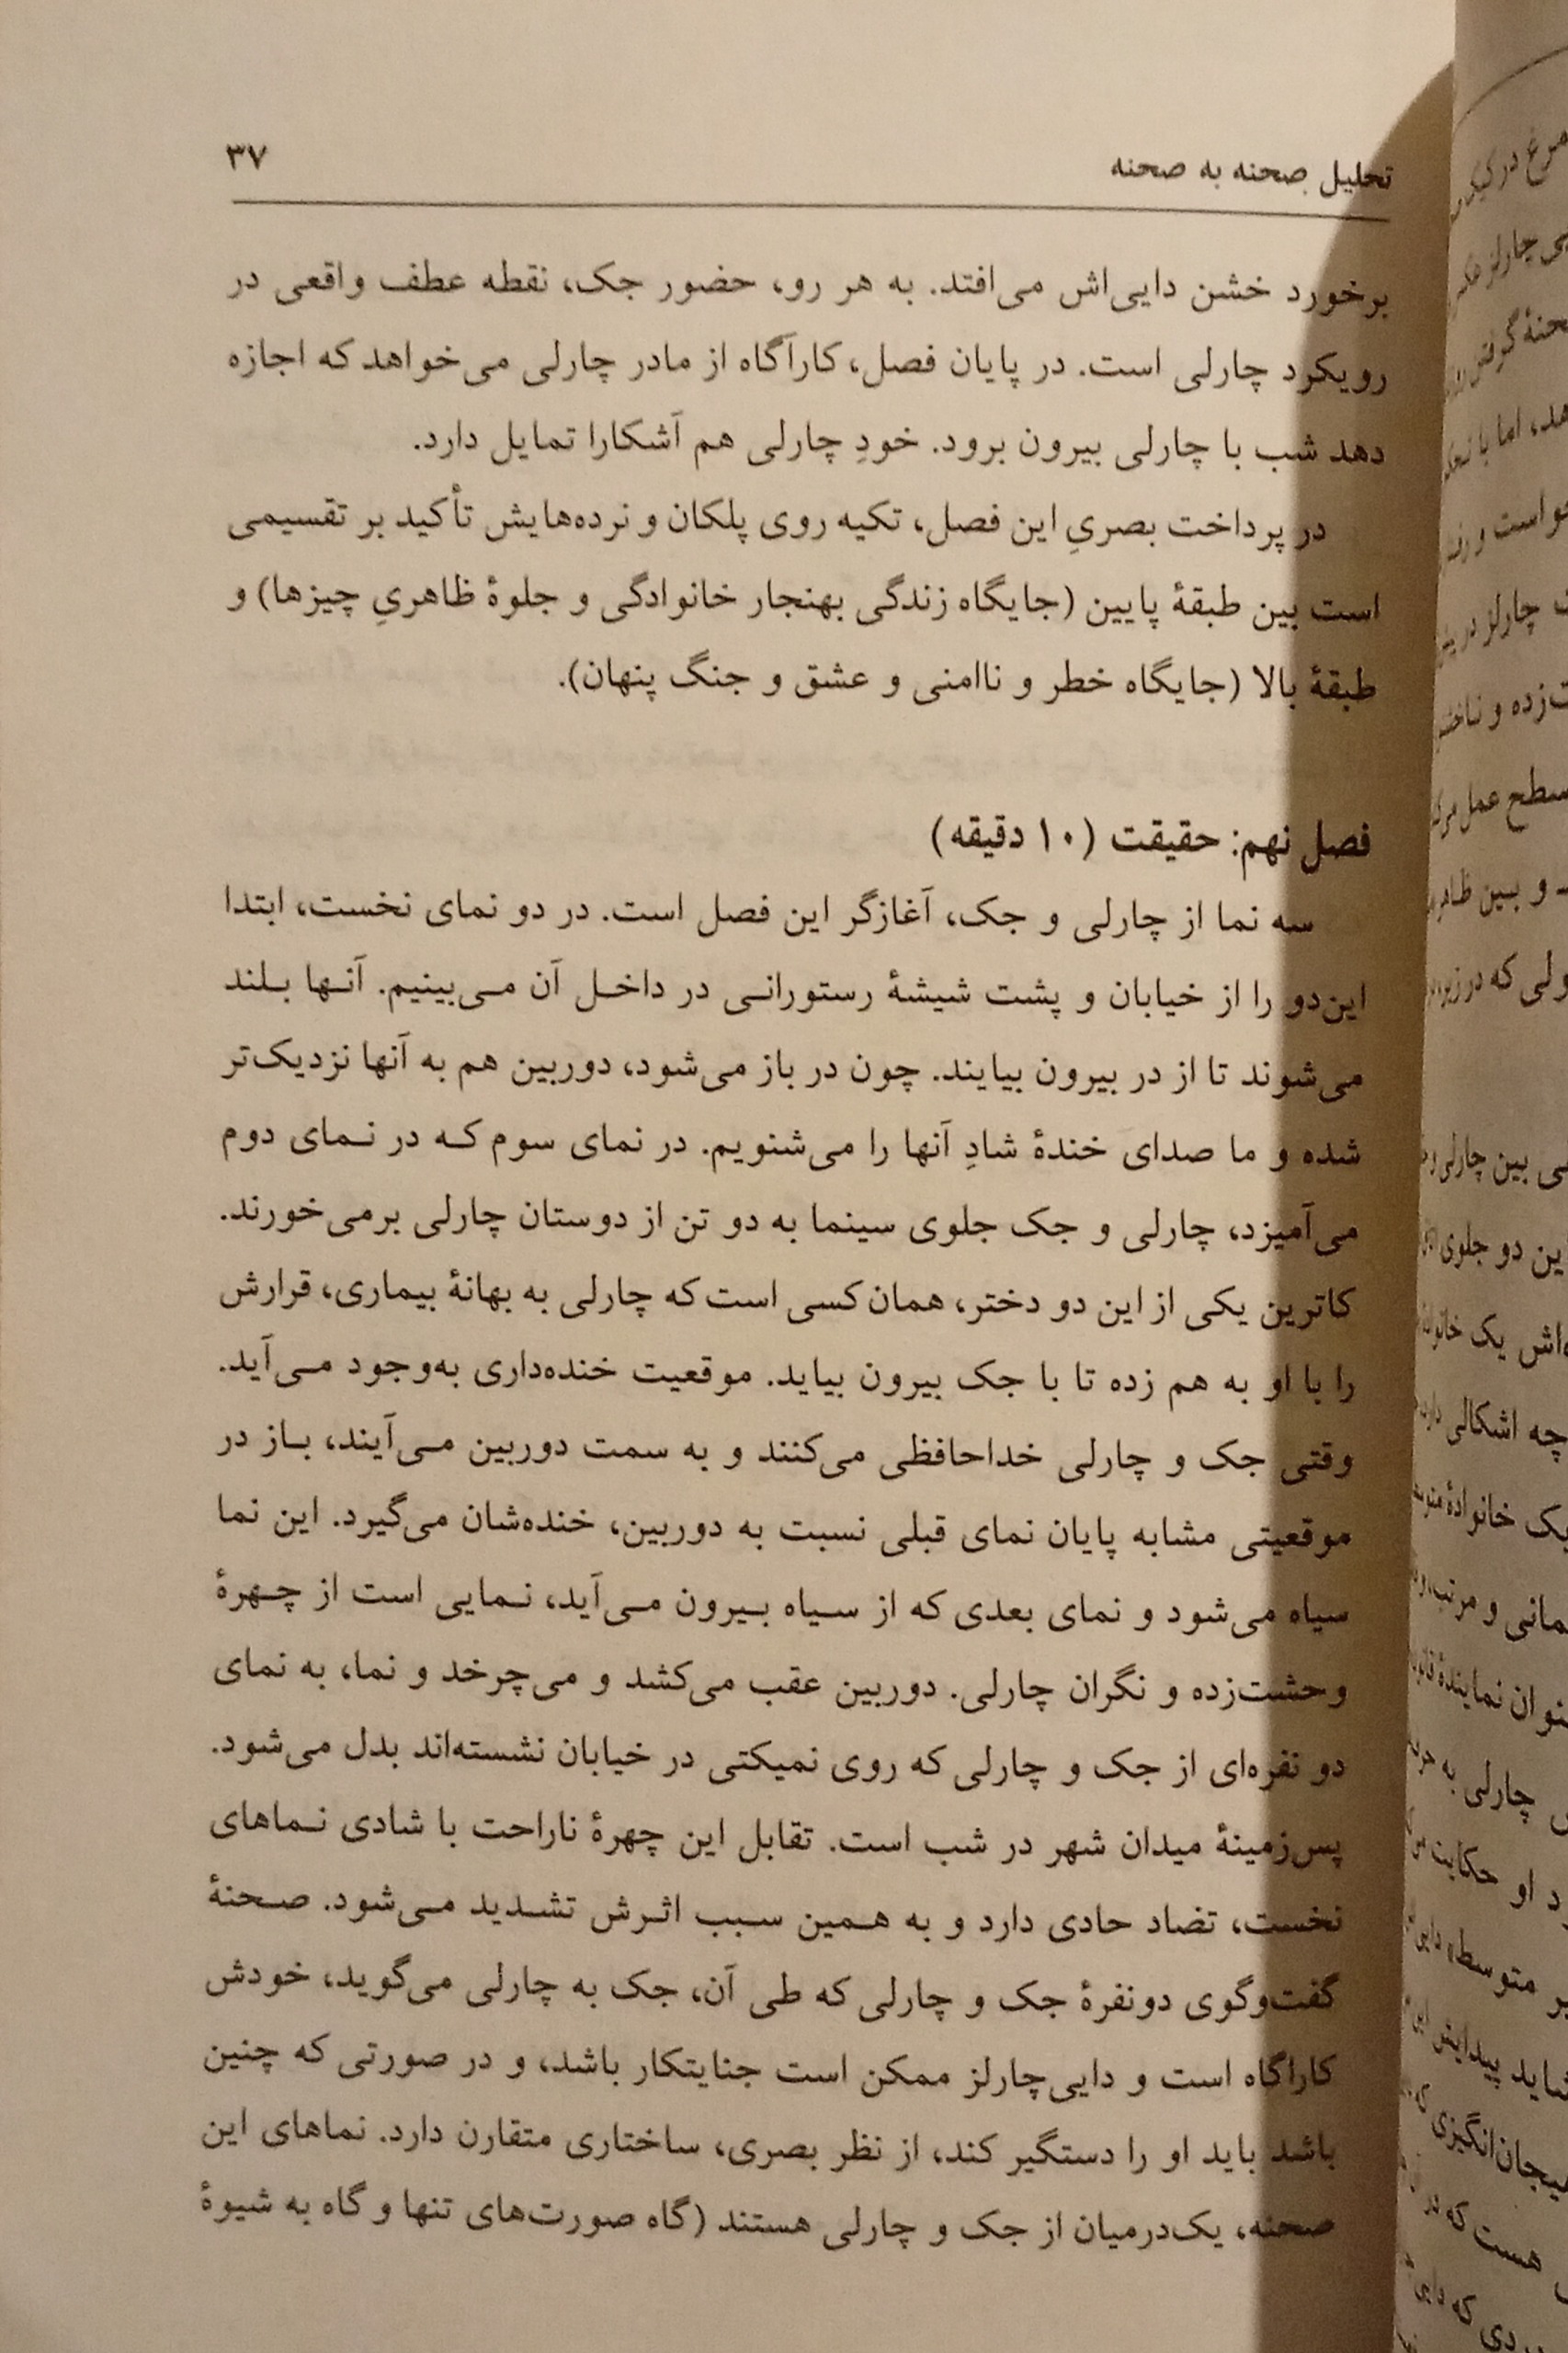 تحلیل صحنه به صحنه ۳۷
برخورد خشن دایی‌اش می‌افتد. به هر رو، حضور جک، نقطه عطف واقعی در
رویکرد چارلی است. در پایان فصل، کارآگاه از مادر چارلی می‌خواهد که اجازه
دهد شب با چارلی بیرون برود. خودِ چارلی هم آشکارا تمایل دارد.
در پرداخت بصریِ این فصل، تکیه روی پلکان و نرده‌هایش تأکید بر تقسیمی
است بین طبقهٔ پایین (جایگاه زندگی بهنجار خانوادگی و جلوهٔ ظاهریِ چیزها) و
طبقهٔ بالا (جایگاه خطر و ناامنی و عشق و جنگ پنهان).
فصل نهم: حقیقت (۱۰ دقیقه)
سه نما از چارلی و جک، آغازگر این فصل است. در دو نمای نخست، ابتدا
این‌دو را از خیابان و پشت شیشهٔ رستورانی در داخل آن می‌بینیم. آنها بلند
می‌شوند تا از در بیرون بیایند. چون در باز می‌شود، دوربین هم به آنها نزدیک‌تر
شده و ما صدای خندهٔ شادِ آنها را می‌شنویم. در نمای سوم که در نمای دوم
می‌آمیزد، چارلی و جک جلوی سینما به دو تن از دوستان چارلی برمی‌خورند.
کاترین یکی از این دو دختر، همان کسی است که چارلی به بهانهٔ بیماری، قرارش
را با او به هم زده تا با جک بیرون بیاید. موقعیت خنده‌داری به‌وجود می‌آید.
وقتی جک و چارلی خداحافظی می‌کنند و به سمت دوربین می‌آیند، باز در
موقعیتی مشابه پایان نمای قبلی نسبت به دوربین، خنده‌شان می‌گیرد. این نما
سیاه می‌شود و نمای بعدی که از سیاه بیرون می‌آید، نمایی است از چهرهٔ
وحشت‌زده و نگران چارلی. دوربین عقب می‌کشد و می‌چرخد و نما، به نمای
دو نفره‌ای از جک و چارلی که روی نیمکتی در خیابان نشسته‌اند بدل می‌شود.
پس‌زمینهٔ میدان شهر در شب است. تقابل این چهرهٔ ناراحت با شادی نماهای
نخست، تضاد حادی دارد و به همین سبب اثرش تشدید می‌شود. صحنهٔ
گفت‌وگوی دونفرهٔ جک و چارلی که طی آن، جک به چارلی می‌گوید، خودش
کاراگاه است و دایی‌چارلز ممکن است جنایتکار باشد، و در صورتی که چنین
باشد باید او را دستگیر کند، از نظر بصری، ساختاری متقارن دارد. نماهای این
صحنه، یک‌درمیان از جک و چارلی هستند (گاه صورت‌های تنها و گاه به شیوهٔ